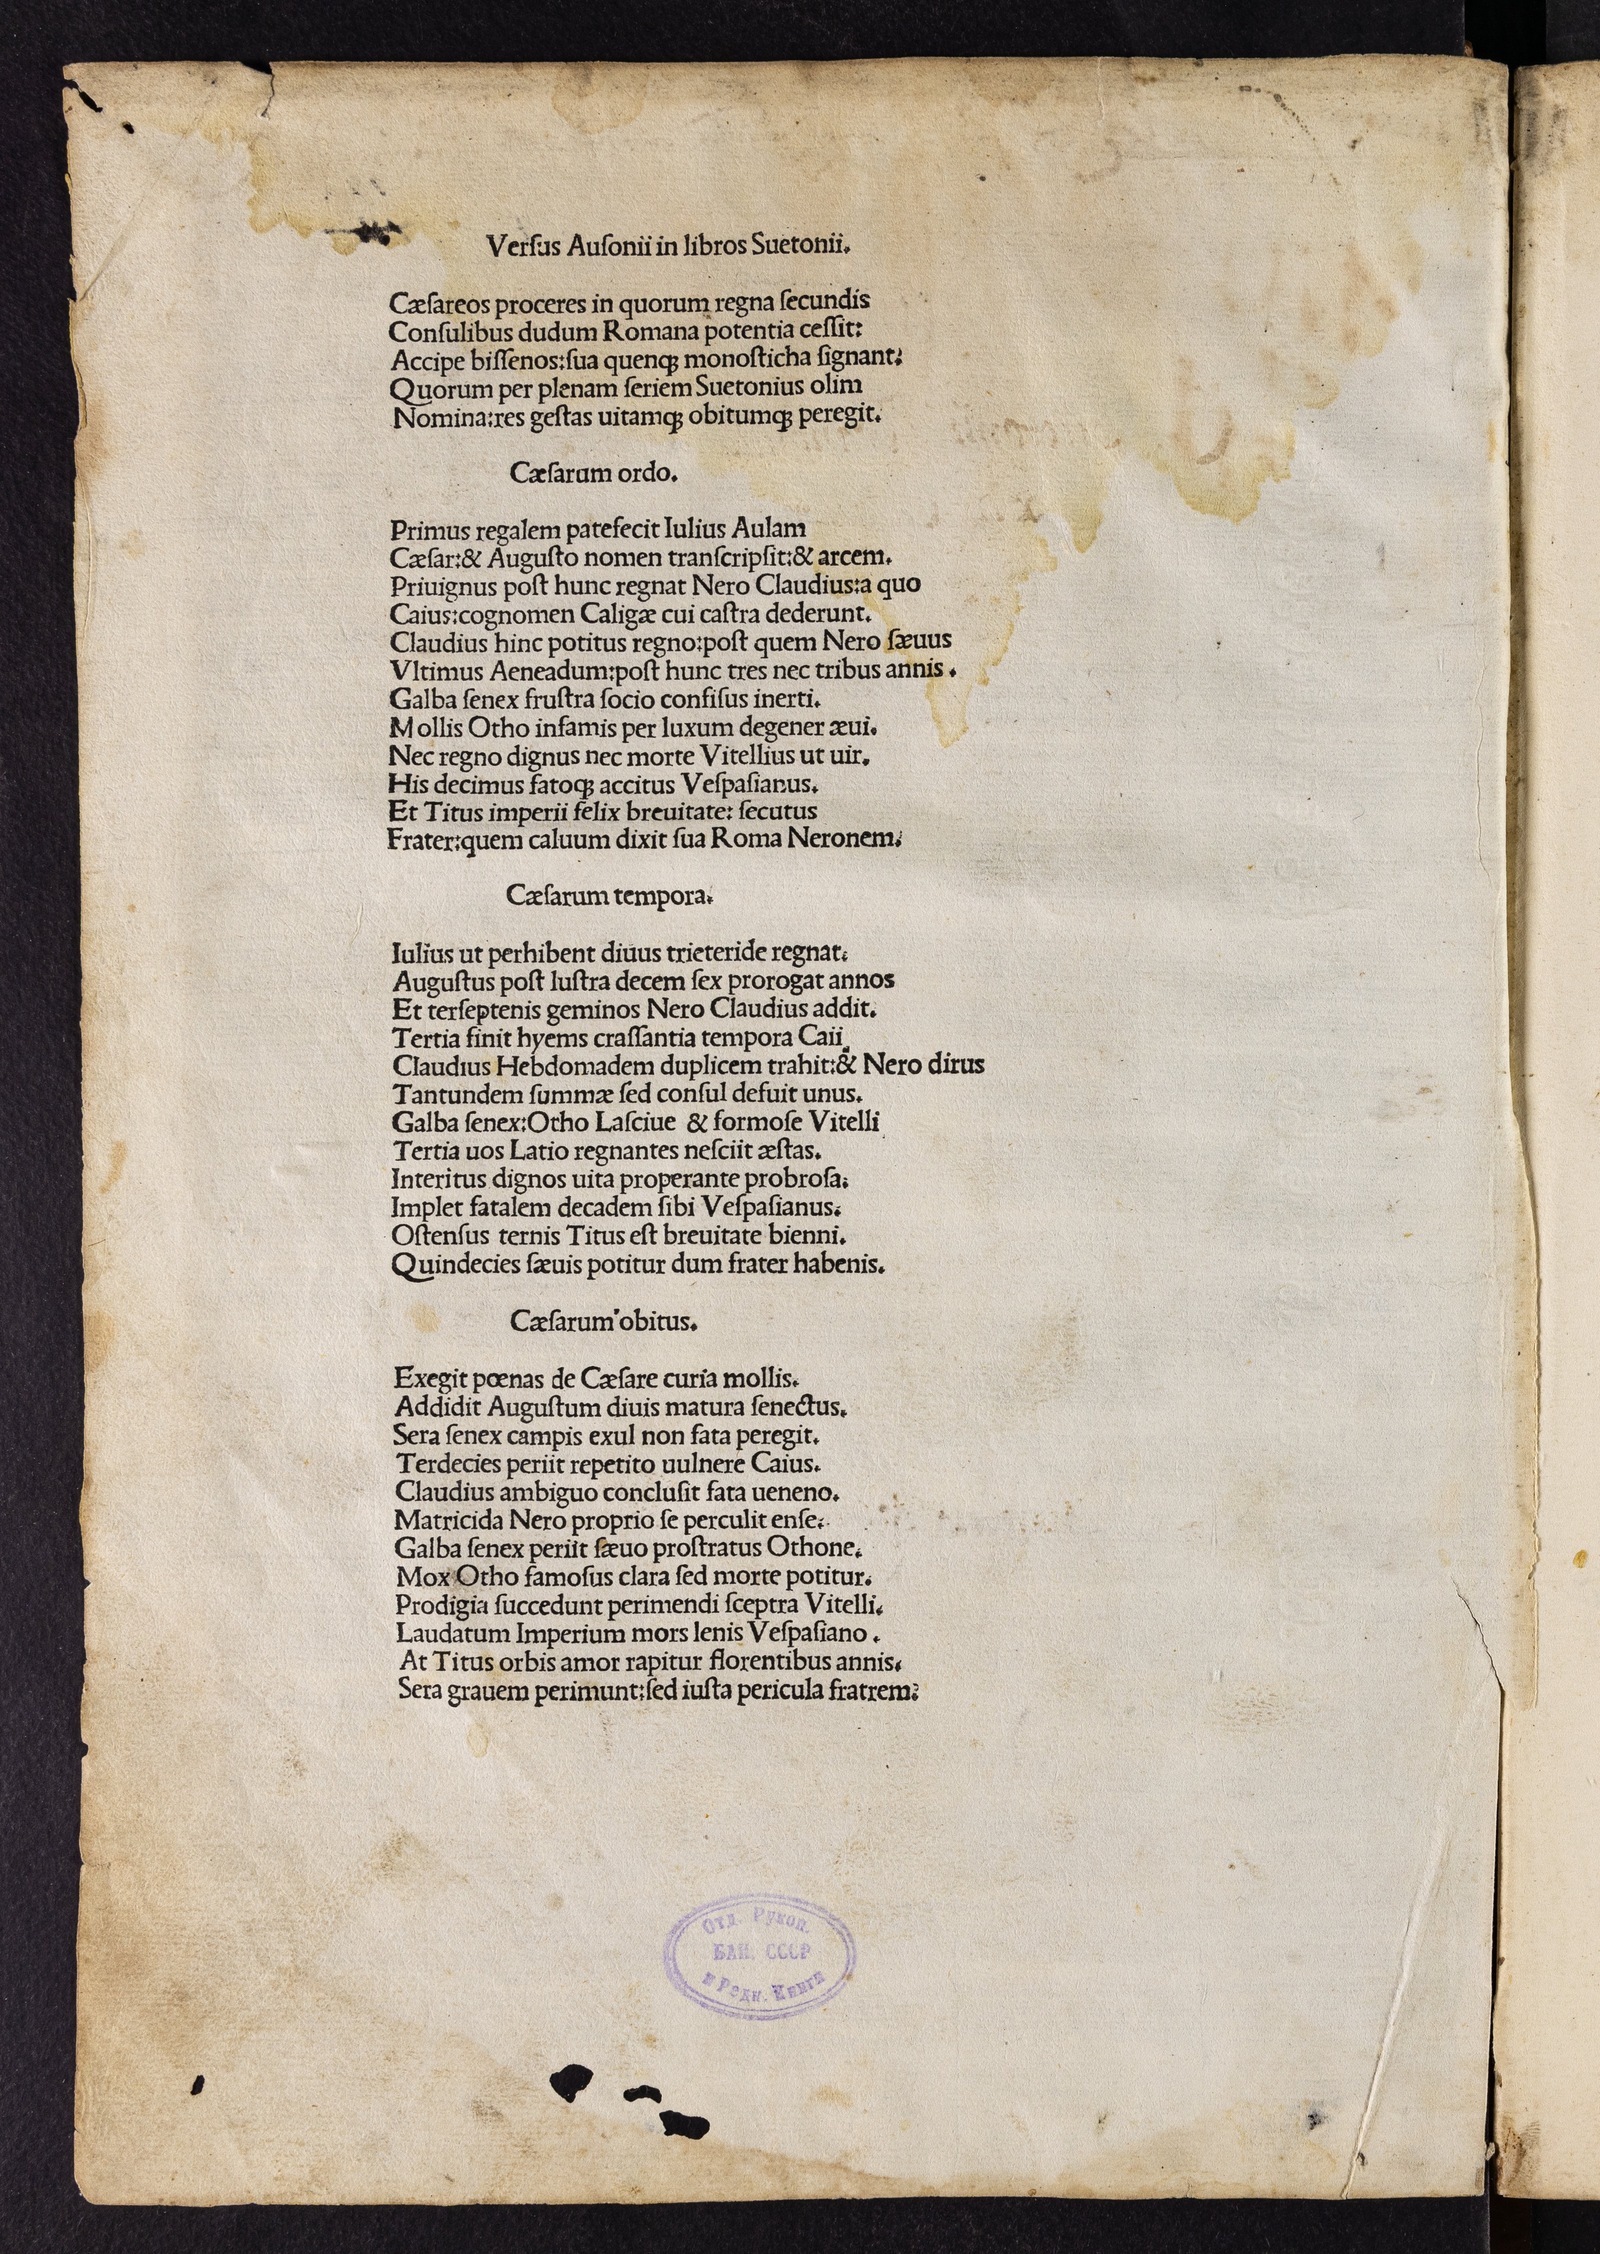 Verſus Auſonii in libros Suetonii.
Cæſareos proceres in quorum regna ſecundis
Conſulibus dudum Romana potentia ceſſit:
Accipe biſſenos:ſua quenqꝫ monoſticha ſignant:
Quorum per plenam ſeriem Suetonius olim
Nomina:res geſtas uitamqꝫ obitumqꝫ peregit.
Cæſarum ordo.
Primus regalem patefecit Iulius Aulam
Cæſar:& Auguſto nomen tranſcripſit:& arcem.
Priuignus poſt hunc regnat Nero Claudius:a quo
Caius:cognomen Caligæ cui caſtra dederunt.
Claudius hinc potitus regno:poſt quem Nero ſæuus
Vltimus Aeneadum:poſt hunc tres nec tribus annis .
Galba ſenex fruſtra ſocio confiſus inerti.
Mollis Otho infamis per luxum degener æui.
Nec regno dignus nec morte Vitellius ut uir.
His decimus fatoqꝫ accitus Veſpaſianus.
Et Titus imperii felix breuitate: ſecutus
Frater:quem caluum dixit ſua Roma Neronem.
Cæſarum tempora.
Iulius ut perhibent diuus trieteride regnat.
Auguſtus poſt luſtra decem ſex prorogat annos
Et terſeptenis geminos Nero Claudius addit.
Tertia finit hyems craſſantia tempora Caii.
Claudius Hebdomadem duplicem trahit:& Nero dirus
Tantundem ſummæ ſed conſul defuit unus.
Galba ſenex:Otho Laſciue & formoſe Vitelli
Tertia uos Latio regnantes neſciit æſtas.
Interitus dignos uita properante probroſa.
Implet fatalem decadem ſibi Veſpaſianus.
Oſtenſus ternis Titus eſt breuitate bienni.
Quindecies ſæuis potitur dum frater habenis.
Cæſarum obitus.
Exegit pœnas de Cæſare curia mollis.
Addidit Auguſtum diuis matura ſenectus.
Sera ſenex campis exul non fata peregit.
Terdecies periit repetito uulnere Caius.
Claudius ambiguo concluſit fata ueneno.
Matricida Nero proprio ſe perculit enſe.
Galba ſenex periit ſæuo proſtratus Othone.
Mox Otho famoſus clara ſed morte potitur.
Prodigia ſuccedunt perimendi ſceptra Vitelli.
Laudatum Imperium mors lenis Veſpaſiano .
At Titus orbis amor rapitur florentibus annis.
Sera grauem perimunt:ſed iuſta pericula fratrem.
Отд. Рукоп.
БАН. СССР
и Редк. Книги